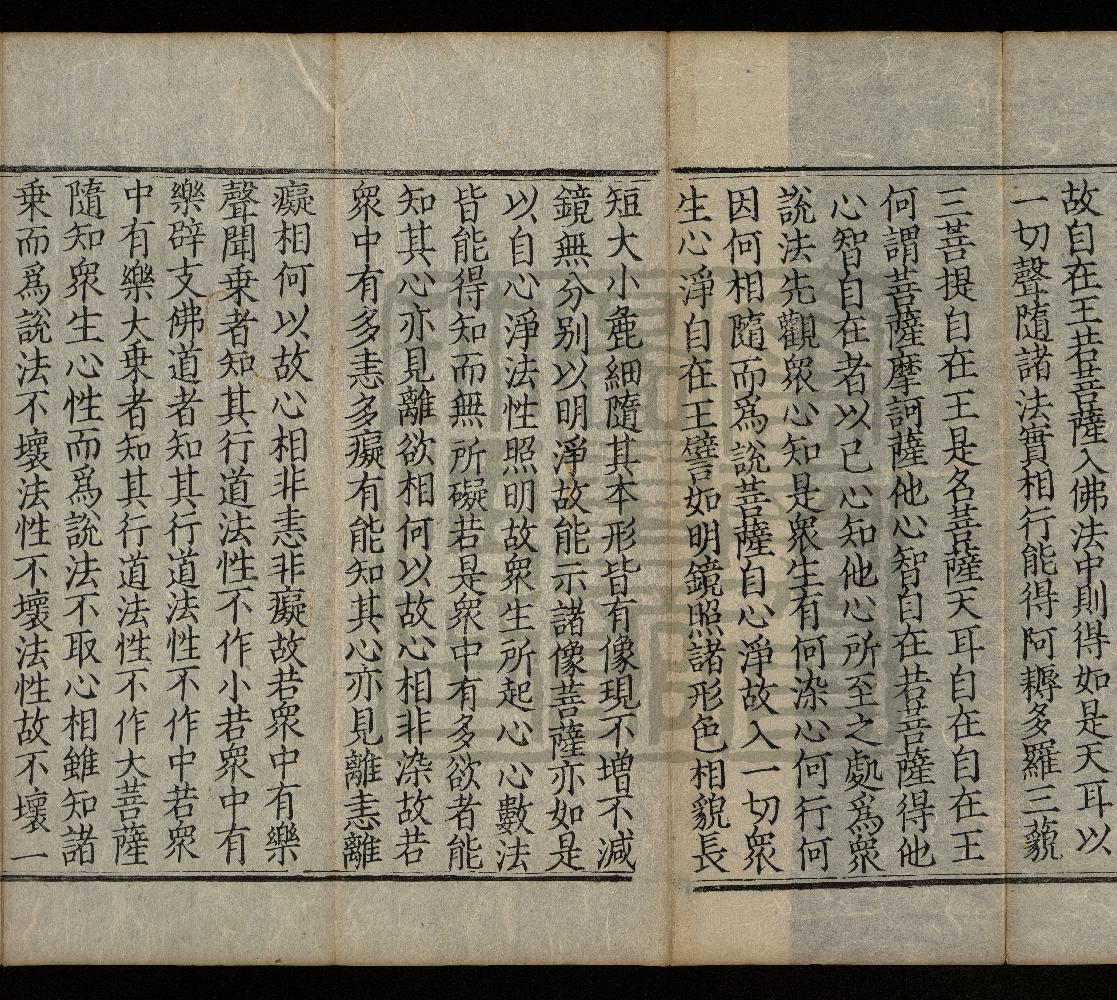 故自在王若菩薩入佛法中則得如是天耳以
一切聲隨諸法實相行能得阿耨多羅三藐
三菩提自在王是名菩薩天耳自在自在王
何謂菩薩摩訶薩他心智自在若菩薩得他
心智自在者以已心知他心所至之處爲衆
說法先觀衆心知是衆生有何染心何行何
因何相隨而爲說菩薩自心淨故入一切衆
生心淨自在王譬如明鏡照諸形色相貌長
短大小麁細隨其本形皆有像現不增不減
鏡無分别以明淨故能示諸像菩薩亦如是
以自心淨法性照明故衆生所起心心數法
皆能得知而無所礙若是衆中有多欲者能
知其心亦見離欲相何以故心相非染故若
衆中有多恚多癡有能知其心亦見離恚離
癡相何以故心相非恚非癡故若衆中有樂
聲聞乗者知其行道法性不作小若衆中有
樂辟支佛道者知其行道法性不作中若衆
中有樂大乗者知其行道法性不作大菩薩
隨知衆生心性而爲說法不取心相雖知諸
乗而爲說法不壞法性不壞法性故不壞一